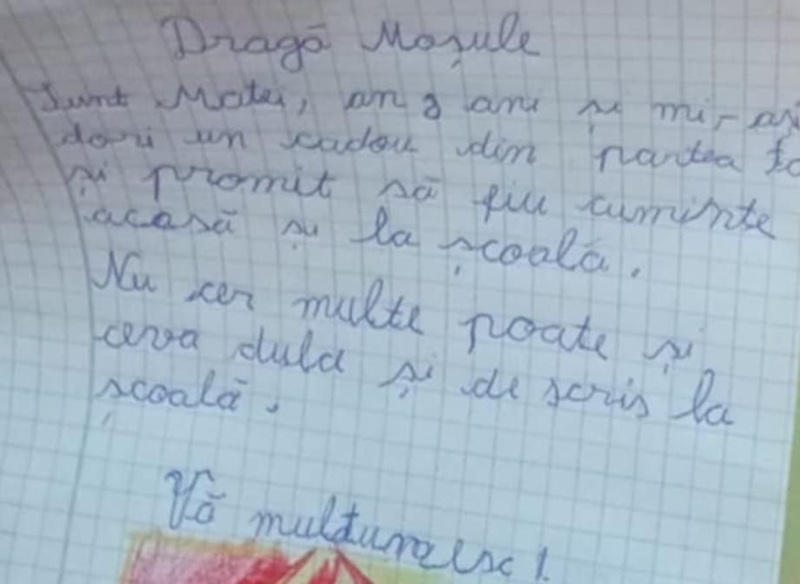 Dragă Moșule
Sunt Matei, am 8 ani și mi-aș
dori un cadou din partea ta
și promit să fiu cuminte
acasă și la școală.
Nu cer multe poate și
ceva dulci și de scris la
școală.
Vă mulțumesc!